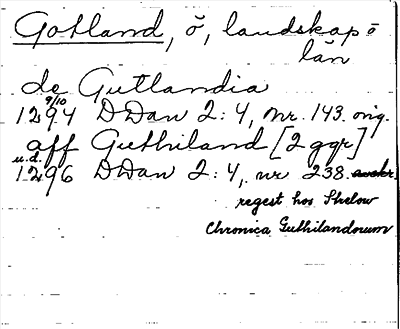 Gotland, ö, landskap o
län
de Gutlandia
9/10
1294 DDan 2:4, nr. 143. orig.
aff Guthiland [2 ggr]
u.d.
1296 DDan 2:4, nr 238.
regest hos Shelow
Chronica Guthilandorum